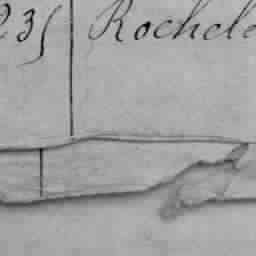 235 Rochele